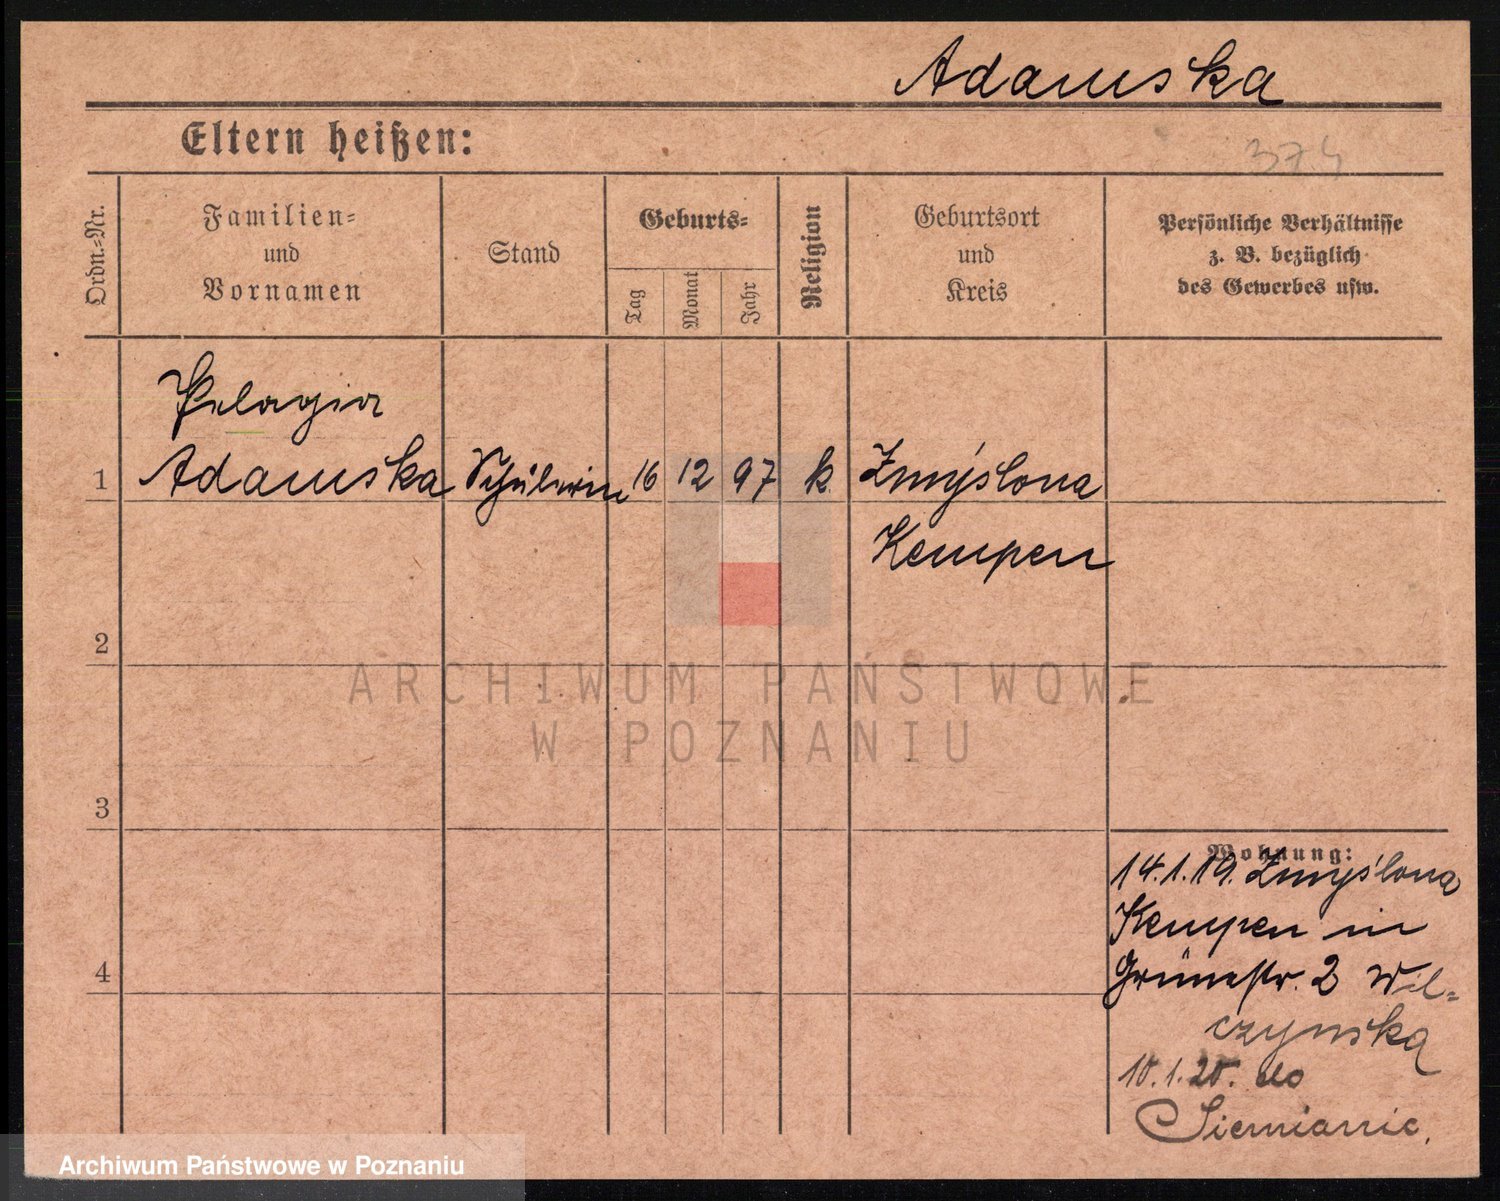 Adamska
Eltern heißen:
374
Ordn.-Nr.
Familien-
und
Vornamen
Stand
Geburts-
Tag
Monat
Jahr
Religion
Geburtsort
und
Kreis
Persönliche Verhältnisse
z. B. bezüglich
des Gewerbes usw.
Pelagia
1 Adamska Schülerin 16 12 97 k. Zmyślona
Kempen
2
3
4
Wohnung:
14.1.19. Zmyślona
Kempen in
Grünestr. 2 Wil-
czynska
10.1.20. do
Siemianic.
ARCHIWUM PAŃSTWOWE
W POZNANIU
Archiwum Państwowe w Poznaniu